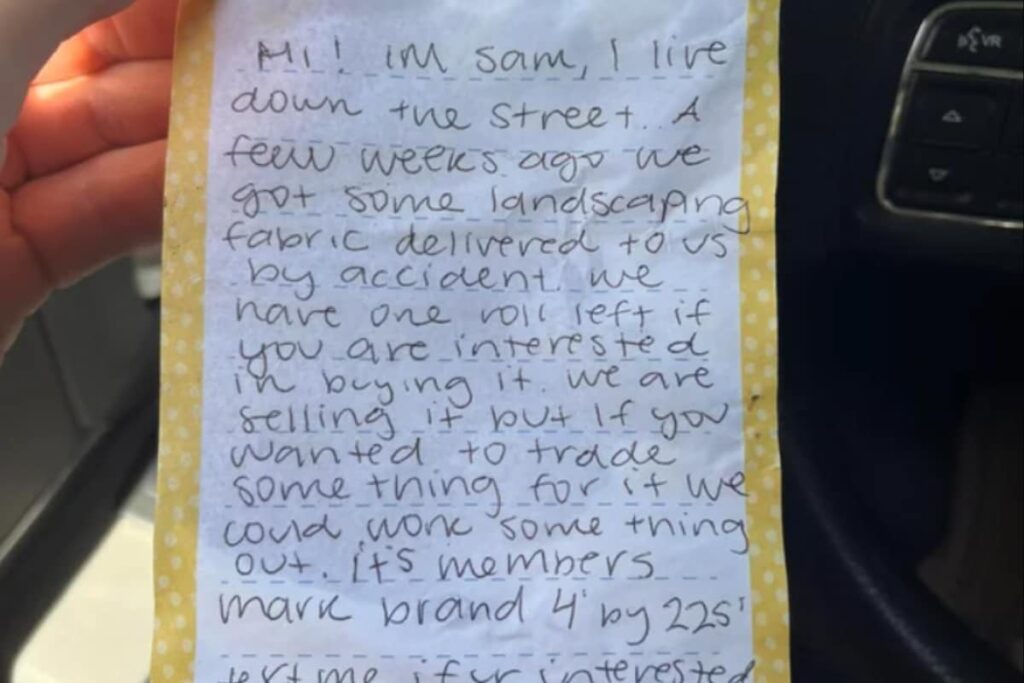 Hi! im sam, I live
down the street. A
few weeks ago we
got some landscaping
fabric delivered to us
by accident. we
have one roll left if
you are interested
in buying it. we are
selling it but if you
wanted to trade
something for it we
could work something
out. it's members
mark brand 4' by 225'
text me if ur interested
VR